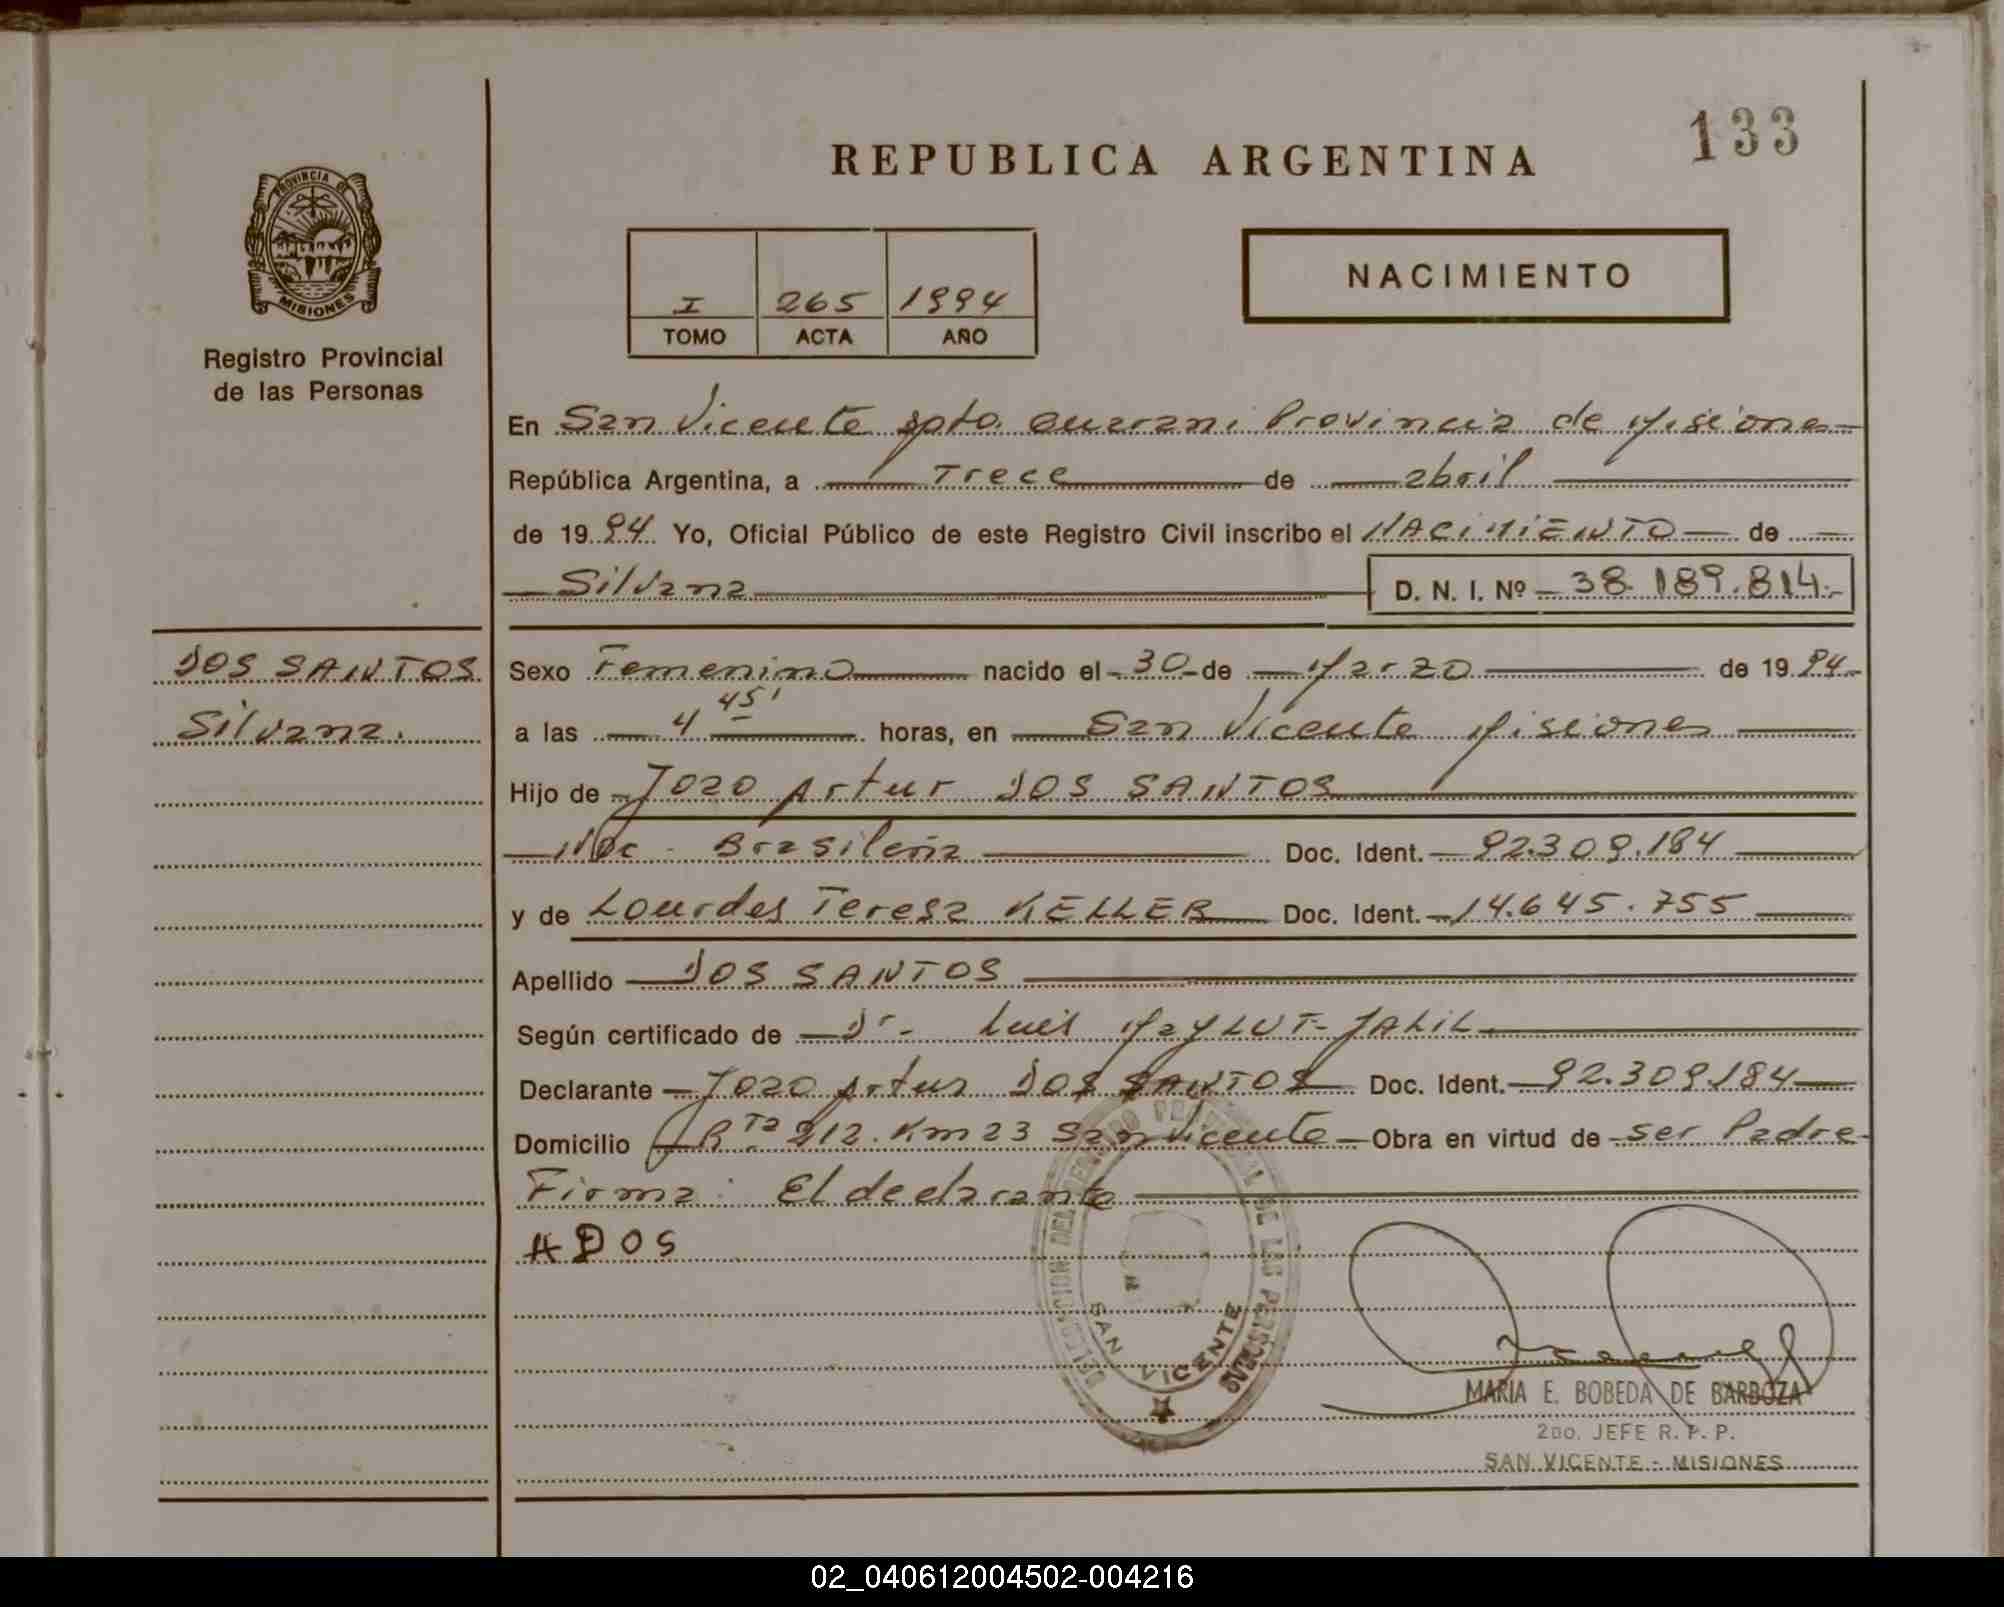 133
REPUBLICA ARGENTINA
PROVINCIA DE
MISIONES
Registro Provincial
de las Personas
I 265 1994
TOMO ACTA AÑO
NACIMIENTO
En San Vicente Dpto. Guarani Provincia de Misiones
República Argentina, a Trece de abril
de 1994 Yo, Oficial Público de este Registro Civil inscribo el NACIMIENTO de
Silvana D. N. I. Nº 38.189.814.-
DOS SANTOS
Silvana.
Sexo Femenino nacido el 30 de Marzo de 1994
a las 4 45' horas, en San Vicente Misiones
Hijo de Joao Artur DOS SANTOS
Nac. Brasileña Doc. Ident. 92.309.184
y de Lourdes Teresa KELLER Doc. Ident. 14.645.755
Apellido DOS SANTOS
Según certificado de Dr. Luis MaYLUT-JALIL
Declarante Joao Artur DOS SANTOS Doc. Ident. 92.309.184
Domicilio RTa 212. Km 23 San Vicente Obra en virtud de ser Padre
Firma: El declarante
ADOS
DIRECCION DEL REGISTRO PROVINCIAL DE LAS PERSONAS
SAN VICENTE
MARIA E. BOBEDA DE BARBOZA
2DO. JEFE R. P. P.
SAN VICENTE - MISIONES
02_040612004502-004216